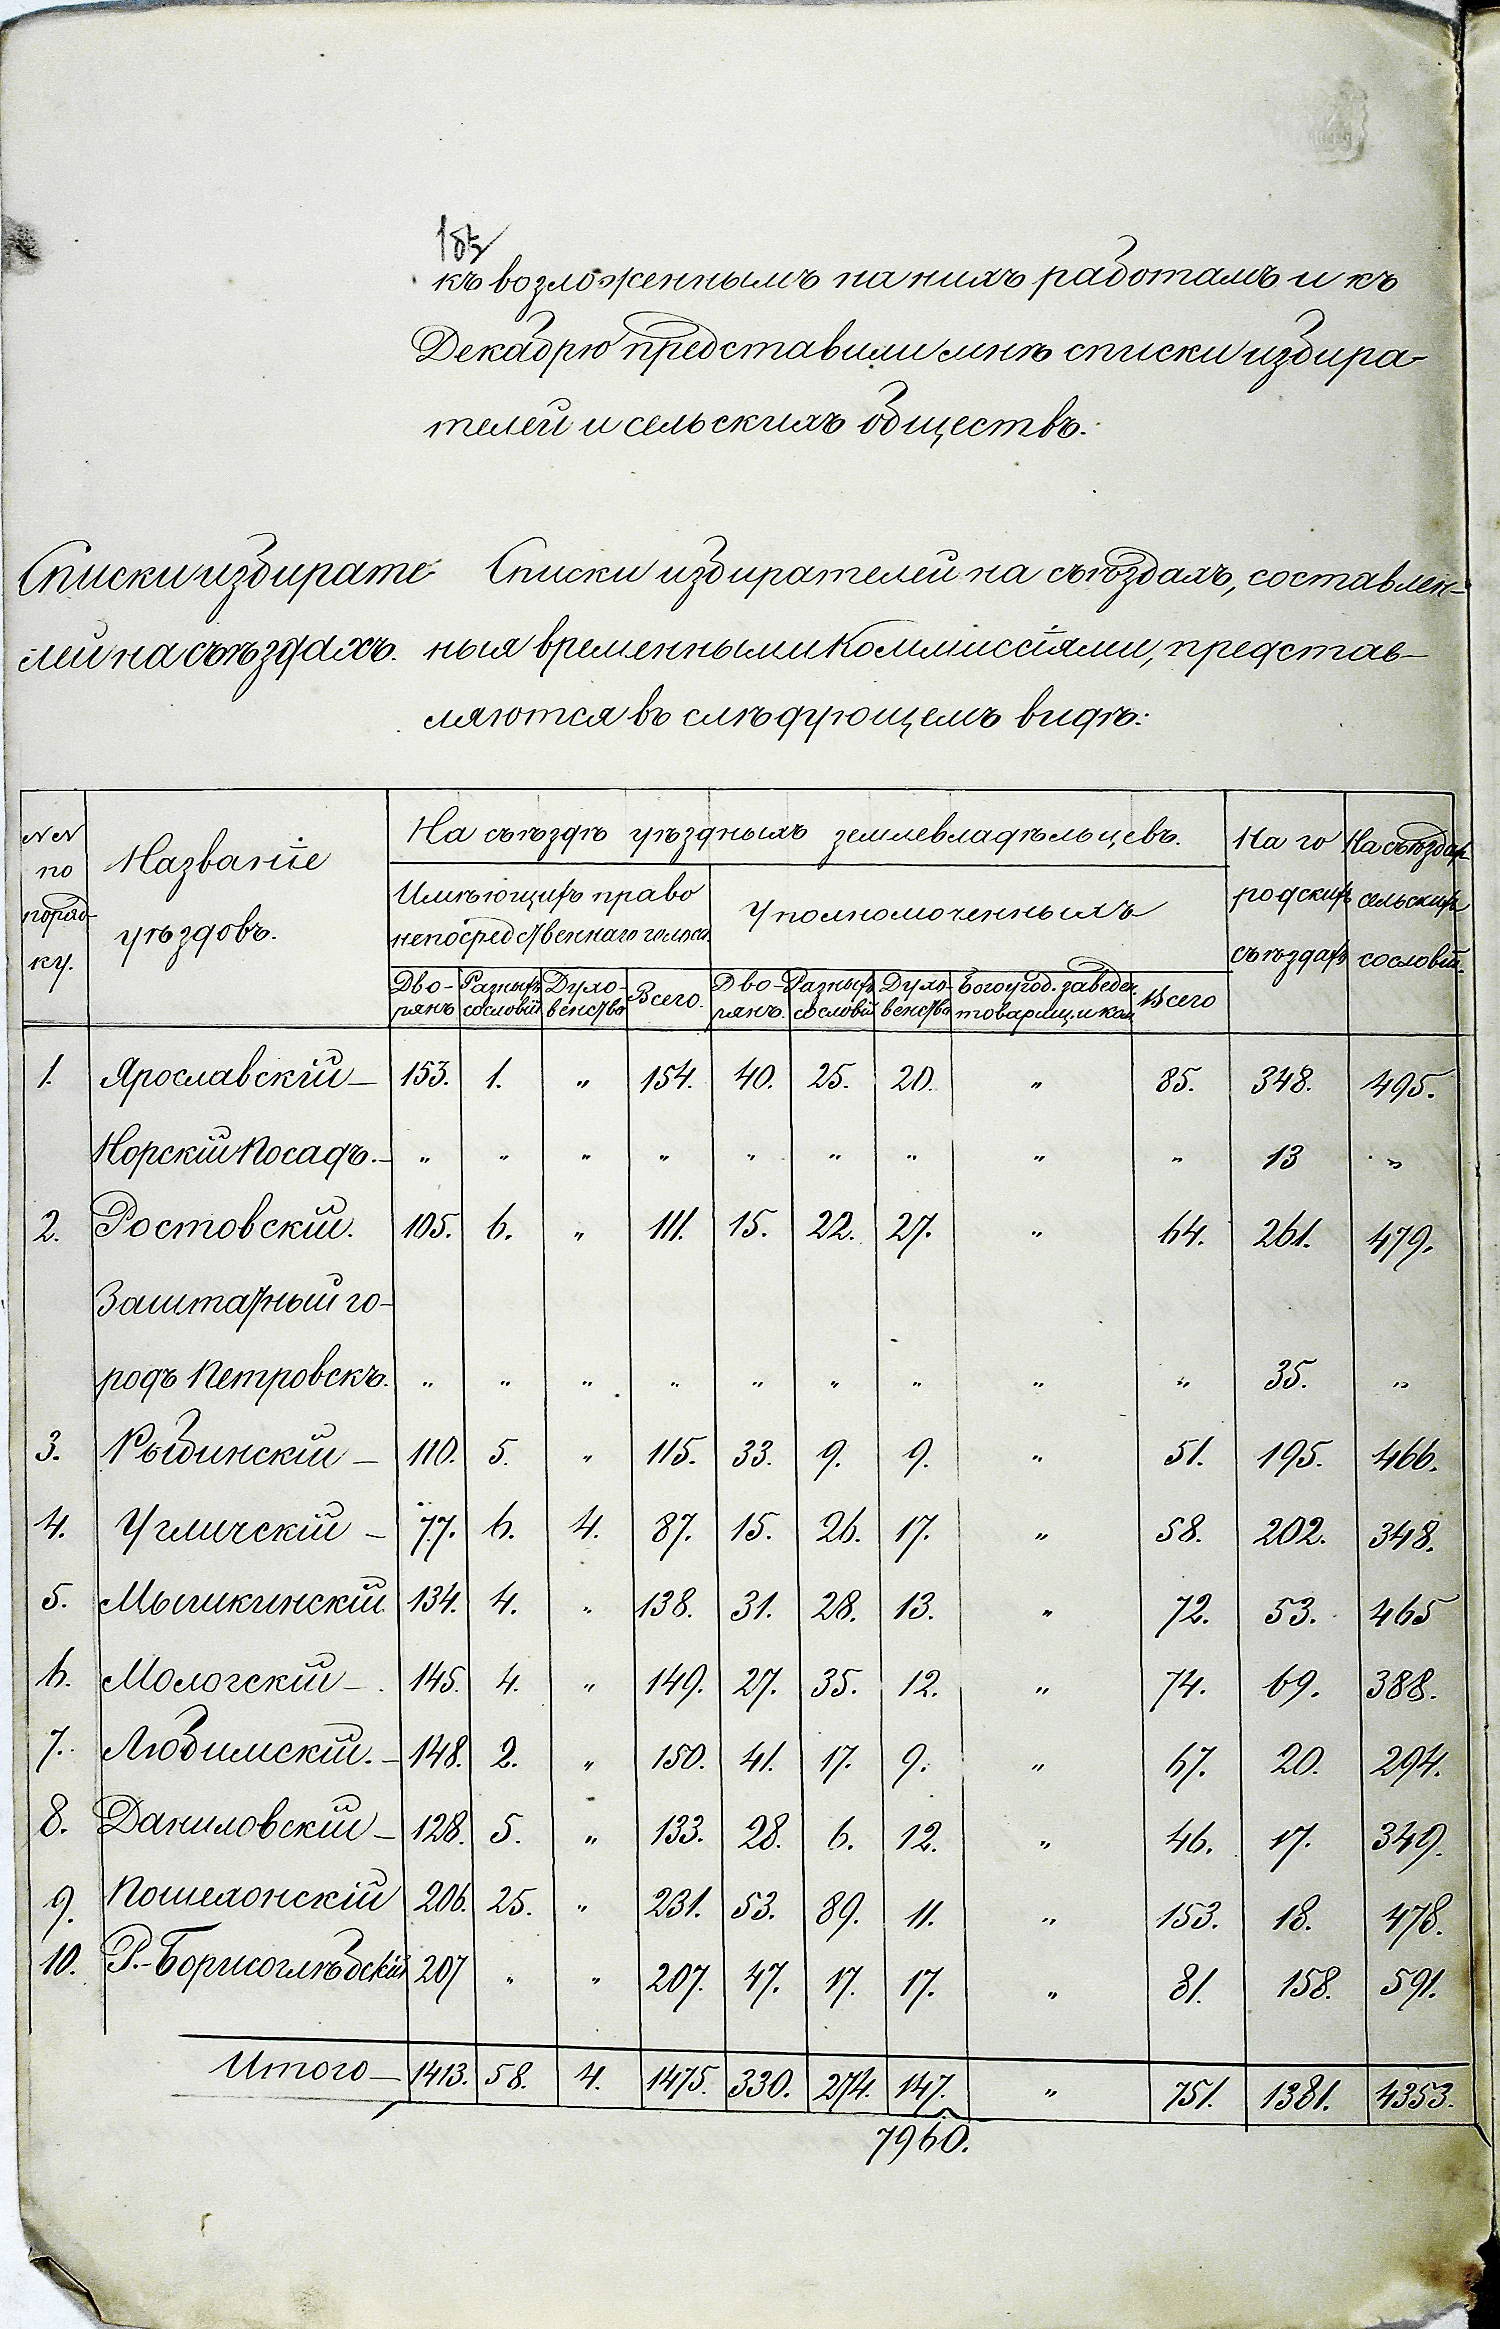 къ возложеннымъ на нихъ работамъ и къ
Декабрю представили мнѣ списки избира-
телей и сельскихъ обществъ.
Списки избирате
лей на съѣздахъ.
Списки избирателей на съѣздахъ, составлен-
ныя временными Коммиссіями, представ-
ляются въ слѣдующемъ видѣ:
№№ по поряд- ку. Названіе уѣздовъ. На съѣздѣ уѣздныхъ землевладѣльцевъ. На го родскихъ съѣздахъ На съѣздахъ сельскихъ сословій.
Имѣющихъ право непосредственнаго голоса. Уполномоченныхъ
Дво- рянъ Разныхъ сословій Духо- венства Всего. Дво- рянъ. Разныхъ сословій Духо- венства Богоугод. заведен. товарищ. и ком. Всего
1. Ярославскій — 153. 1. „ 154. 40. 25. 20. „ 85. 348. 495.
Норскій Посадъ. — „ „ „ „ „ „ „ „ „ 13 „
2. Ростовскій. 105. 6. „ 111. 15. 22. 27. „ 64. 261. 479.
Заштатный го-
родъ Петровскъ. „ „ „ „ „ „ „ „ „ 35. „
3. Рыбинскій — 110. 5. „ 115. 33. 9. 9. „ 51. 195. 466.
4. Угличскій — 77. 6. 4. 87. 15. 26. 17. „ 58. 202. 348.
5. Мышкинскій 134. 4. „ 138. 31. 28. 13. „ 72. 53. 465
6. Мологскій — 145. 4. „ 149. 27. 35. 12. „ 74. 69. 388.
7. Любимскій. — 148. 2. „ 150. 41. 17. 9. „ 67. 20. 294.
8. Даниловскій — 128. 5. „ 133. 28. 6. 12. „ 46. 17. 349.
9. Пошехонскій 206. 25. „ 231. 53. 89. 11. „ 153. 18. 478.
10. Р.-Борисоглѣбскій 207 „ „ 207. 47. 17. 17. „ 81. 158. 591.
Итого — 1413. 58. 4. 1475. 330. 274. 147. „ 751. 1381. 4353.
7960.